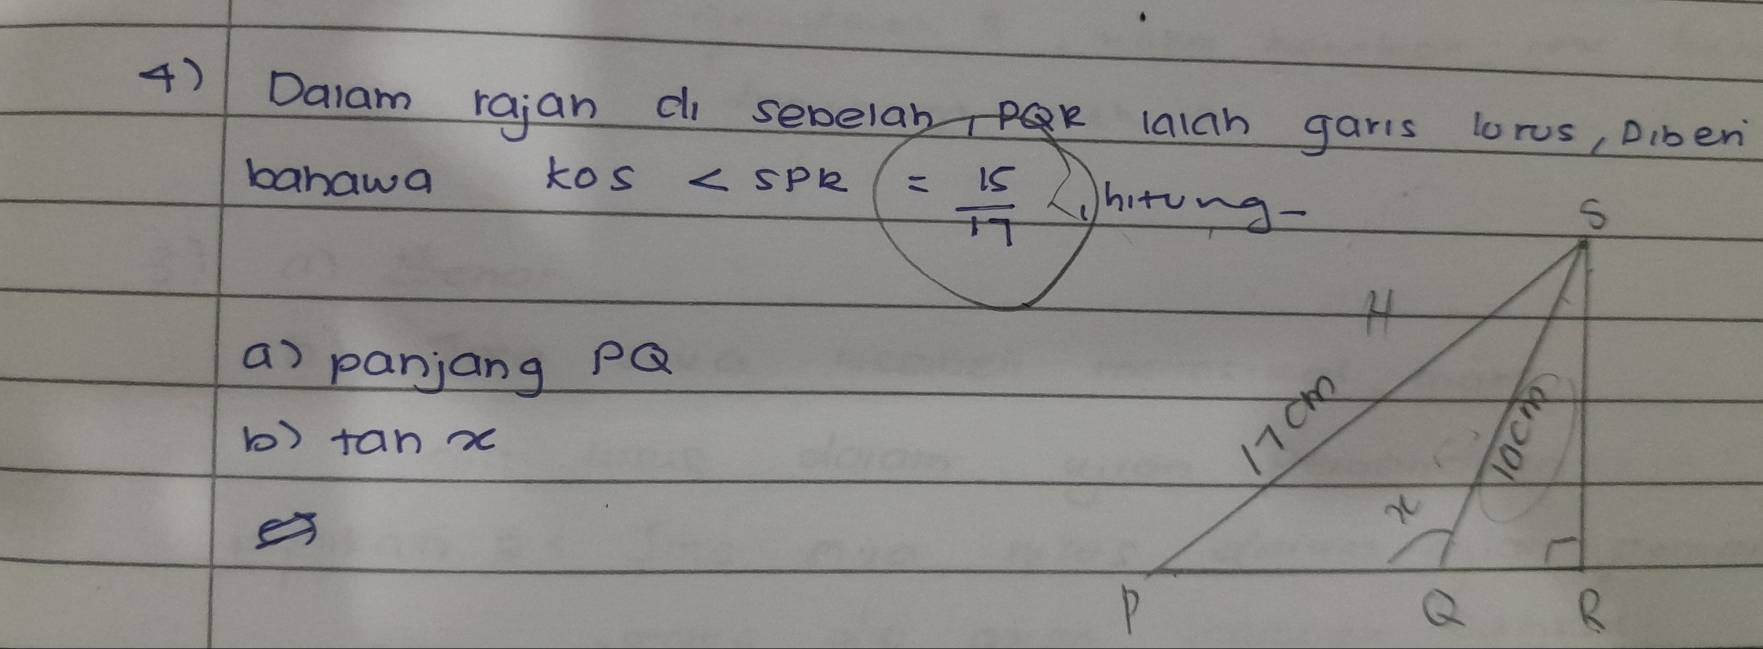 4) Dalam rajah di sebelah, PQR ialah garis lurus, Diberi
bahawa kos < SPR = 15/17, hitung-
S
H
a) panjang PQ
17cm
10cm
b) tan x
x
P
Q
R